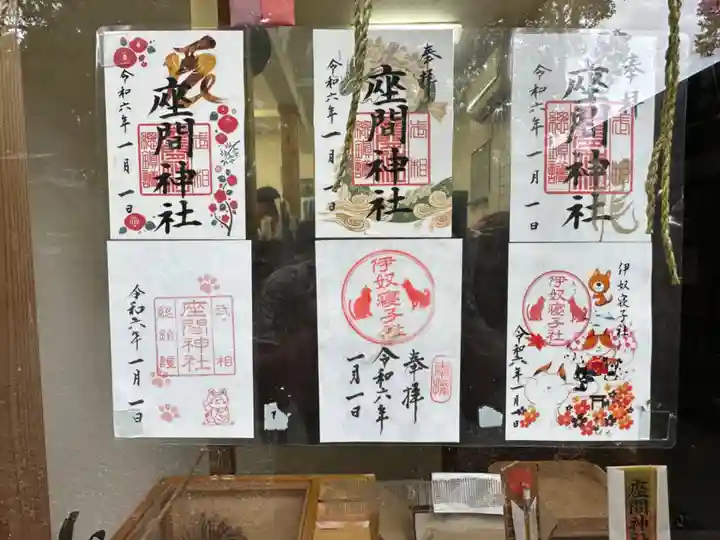 令和六年 一月 一日
座間神社
奉拝
令和六年 一月 一日
座間神社
奉拝
令和六年 一月 一日
座間神社
令和六年 一月 一日
座間神社
武相
総鎮護
伊奴寝子社
奉拝
令和六年
一月一日
伊奴寝子社
伊奴寝子社
令和六年 一月一日
座間神社